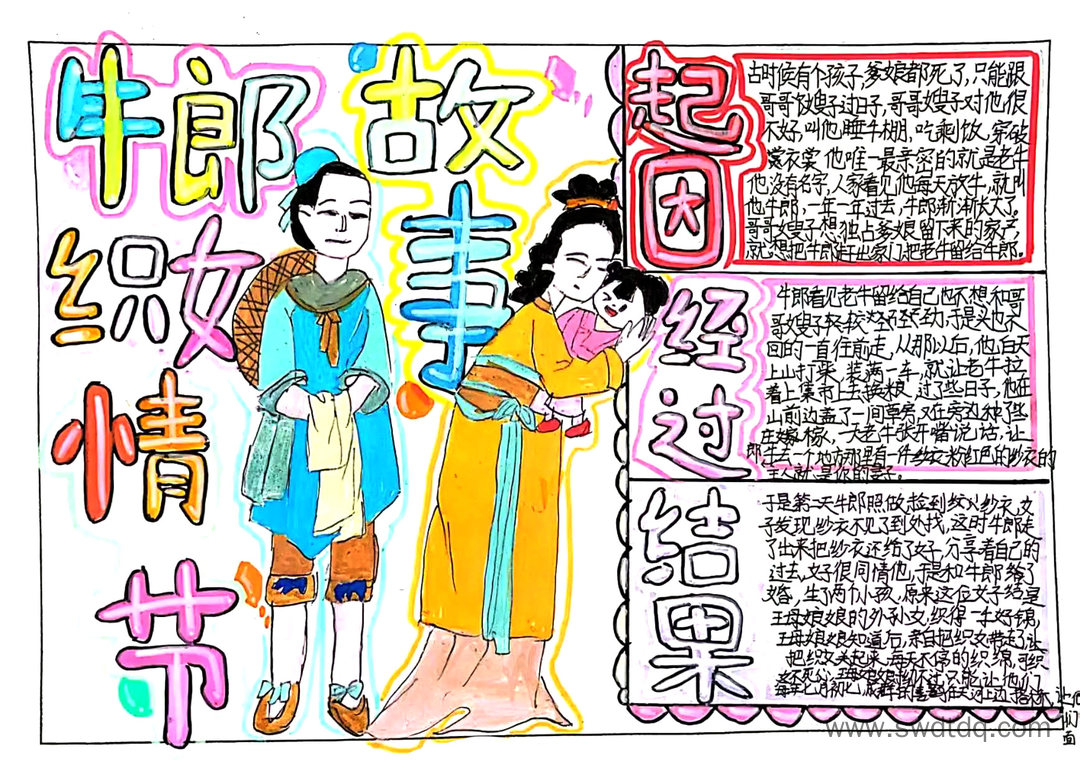 牛郎
织女
情
节
故
事
起
因
古时候有个孩子,爹娘都死了,只能跟
哥哥饭嫂子过日子,哥哥嫂子对他很
不好,叫他睡牛棚,吃剩饭,穿破
衣裳 他唯一最亲密的就是老牛
他没有名字,人家看见他每天放牛,就叫
他牛郎,一年一年过去,牛郎渐渐长大了。
哥哥嫂子想独占爹娘留下来的家产,
就想把牛郎赶出家门把老牛留给牛郎。
经
过
牛郎看见老牛留给自己也不想和哥
哥嫂子 于是头也不
回的一直往前走,从那以后,他白天
上山打柴,装满一车,就让老牛拉
着上集市上去换粮,过了些日子,他在
山前边盖了一间草房,又在旁边种了些
庄嫁 一天老牛张开嘴说话,让
郎牛去一个地方那里有一件 粉红色的纱衣的
主人就是你的妻子。
结
果
于是第二天牛郎照做,捡到 纱衣,女
子发现纱衣不见了到处找,这时牛郎走
了出来把纱衣还给了女子,分享着自己的
过去,女子很同情他,于是和牛郎 了
婚,生了两个小孩,原来这位女子 是
王母娘娘的外孙女,织得一手好锦,
王母娘娘知道后,亲自把织女带走了让
把织女关起来,每天不停的织锦,
只能让他们
每年七月初七, 在天河上边搭桥,让他
们
面
www.swdtdq.com